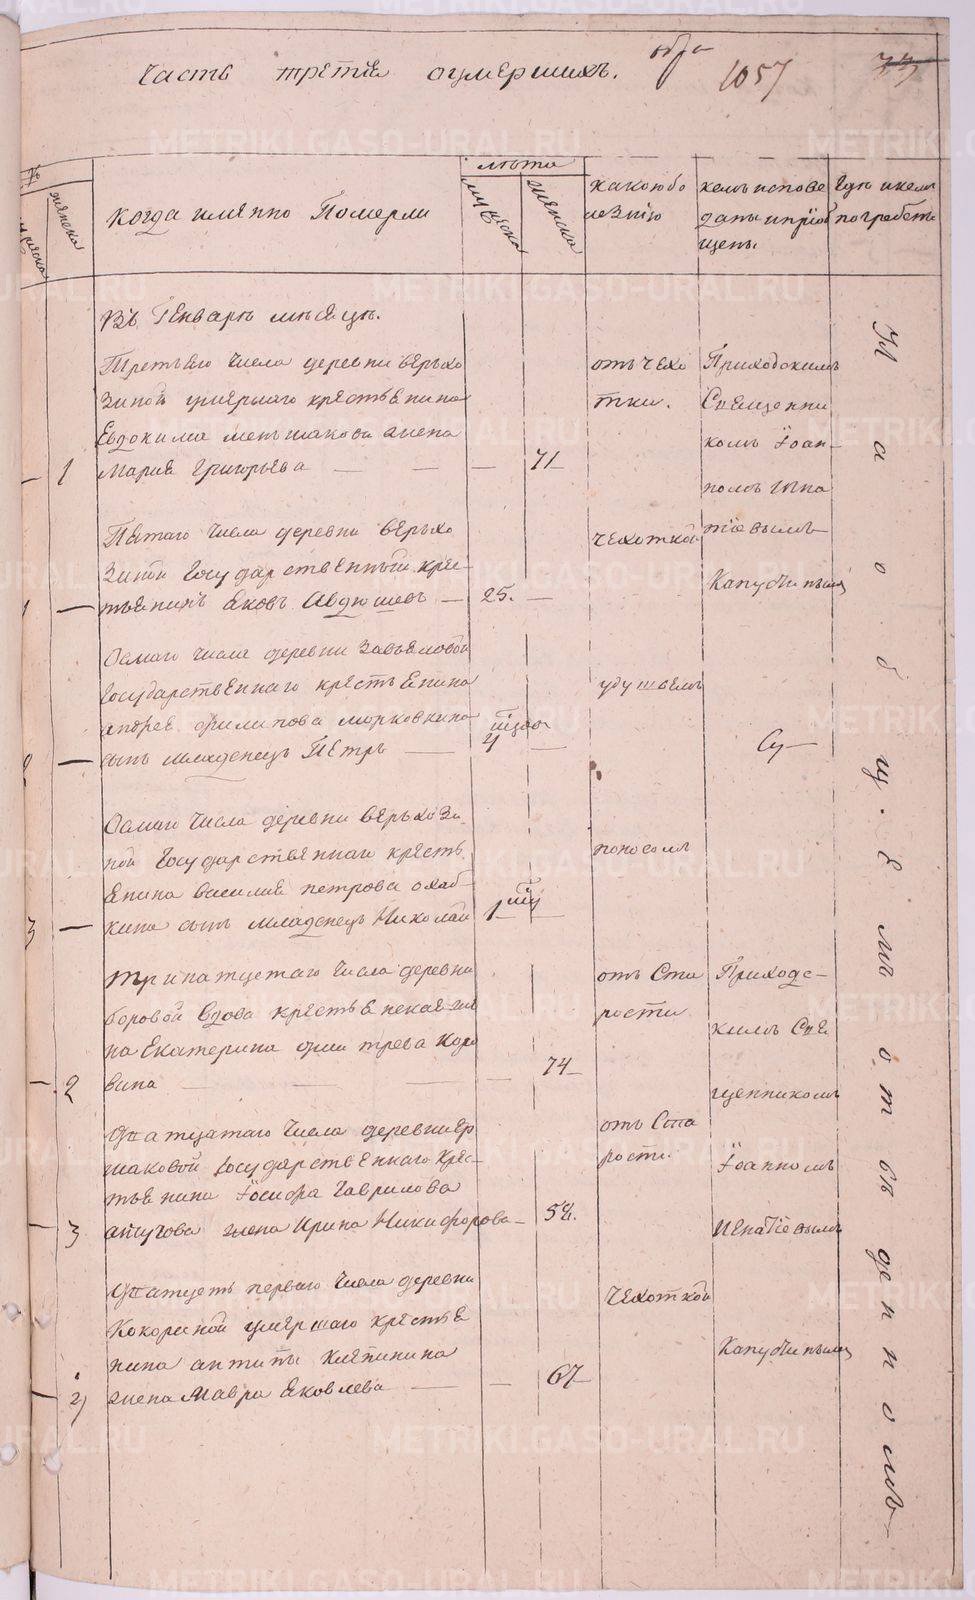 Часть третія оумершихъ.
1057
№
мужеска
женска
когда имянно Померли
лѣта
мужеска
женска
какою бо
лезнію
кемъ испове
даны и пріоб
щены.
Где и кемъ
погребены
Въ Генварѣ месяцѣ.
Третьяго числа деревни верьхо
зиной умершаго крестьянина
Евдокима меньшакова жена
1 Марія Григорьева — — — 71
отъ чехо
тки.
Приходскимъ
Священни
комъ Іоан
номъ Игна
тіевымъ
Капустинымъ
Пятаго числа деревни верьхо
зиной Государственный крес
1 — тьянинъ Яковъ Авдюшевъ — 25. —
чехоткой
Осмаго числа деревни Завьяловой
Государственнаго крестьянина
андрея филипова морковкина
2 — сынъ младенецъ Петръ — 4 —
удушьемъ
Осмаго числа деревни верьхози
ной Государственнаго кресть
янина василия петрова охаб
3 — кина сынъ младенецъ Николай 1 —
поносомъ
тринатцетаго числа деревни
боровой вдова крестьянская же
на Екатерина дми трева коро
— 2 вина — — — 74
отъ Ста
рости
Приходс
кимъ Свя
щенникомъ
Іоанномъ
Игнатіевымъ
Капустинымъ
Дватцатаго числа деревни ер
шаковой Государственнаго крес
тьянина Іосифа Гаврилова
— 3 жена Ирина Никифорова —
отъ Ста
рости.
Дватцеть перваго числа деревни
Кокориной умершаго крестья
нина антипы
— жена Мавра Яковлева — — 67
чехоткой
METRIKI.GASO-URAL.RU